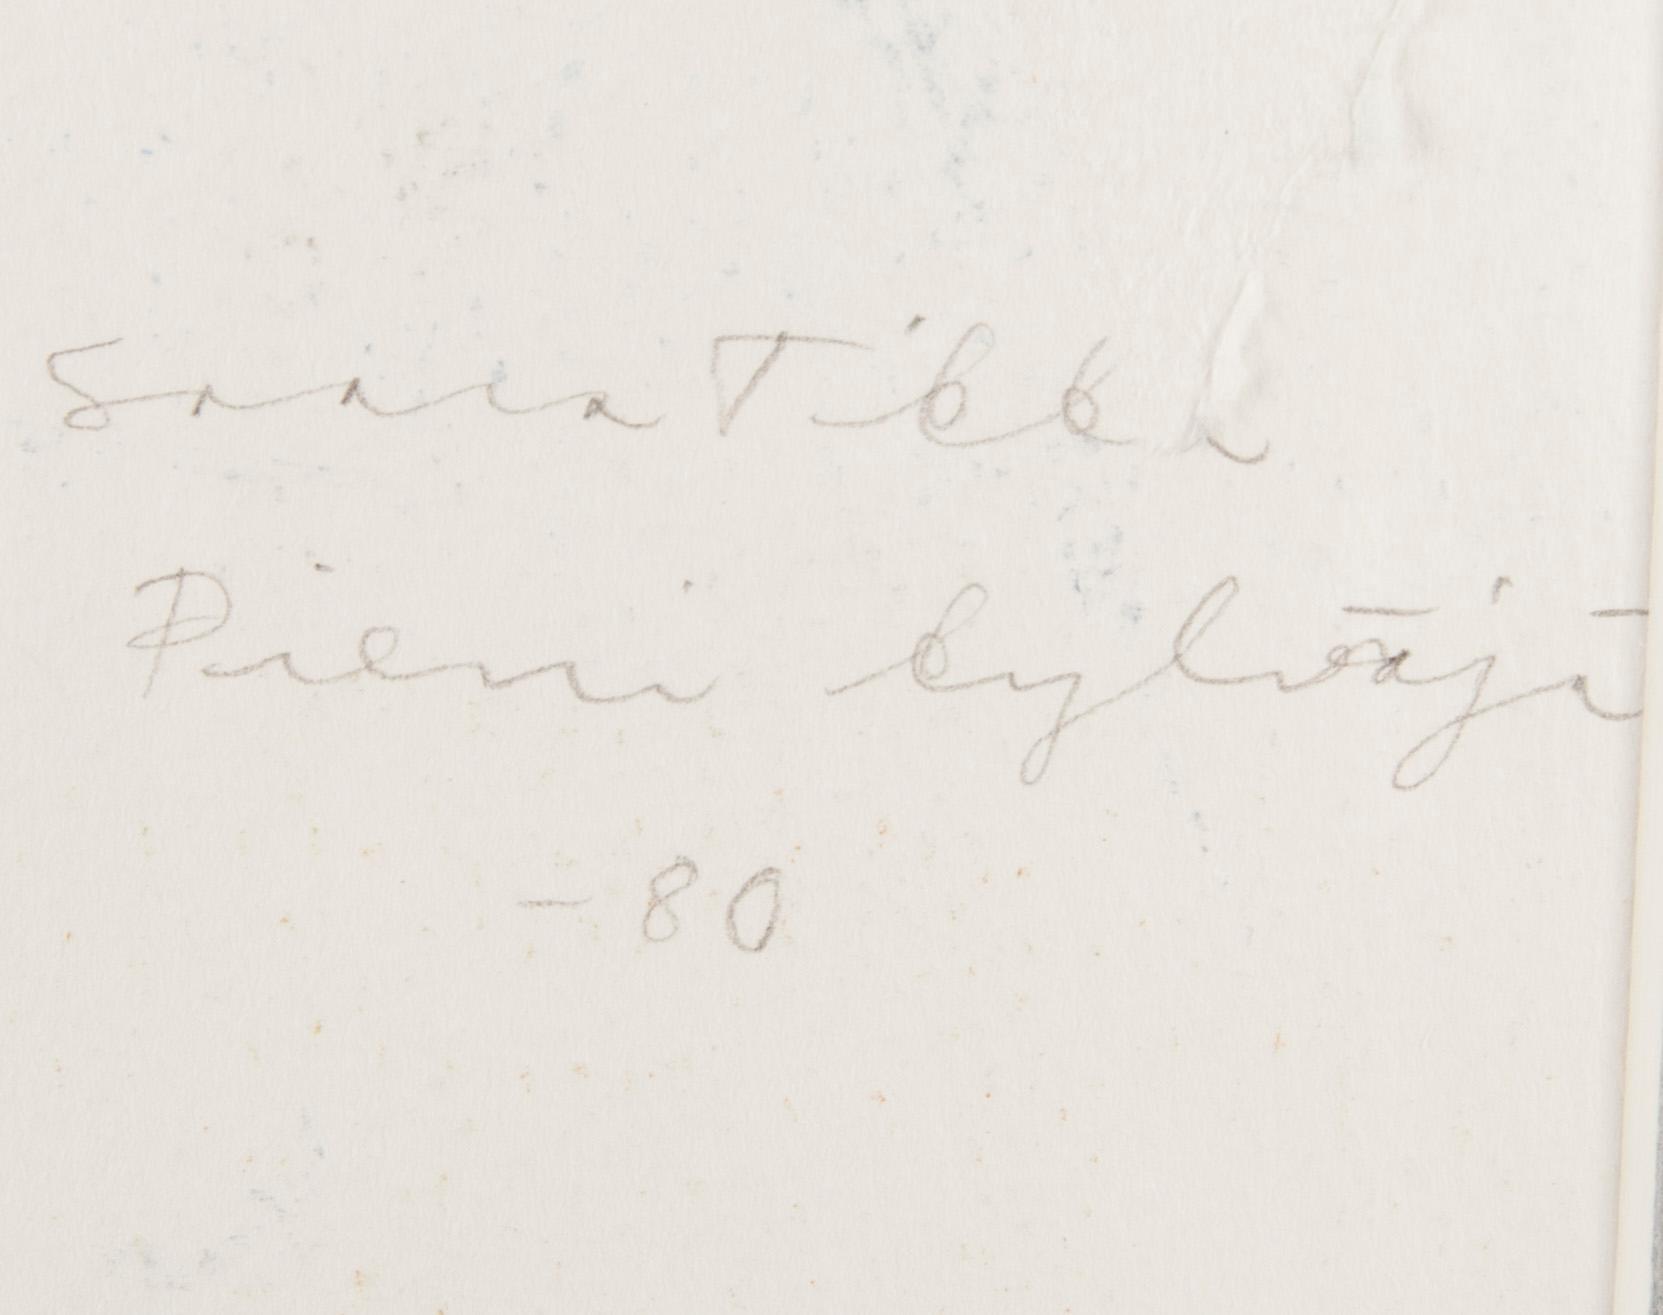 Saara Tikka
Pieni kylväjä
-80